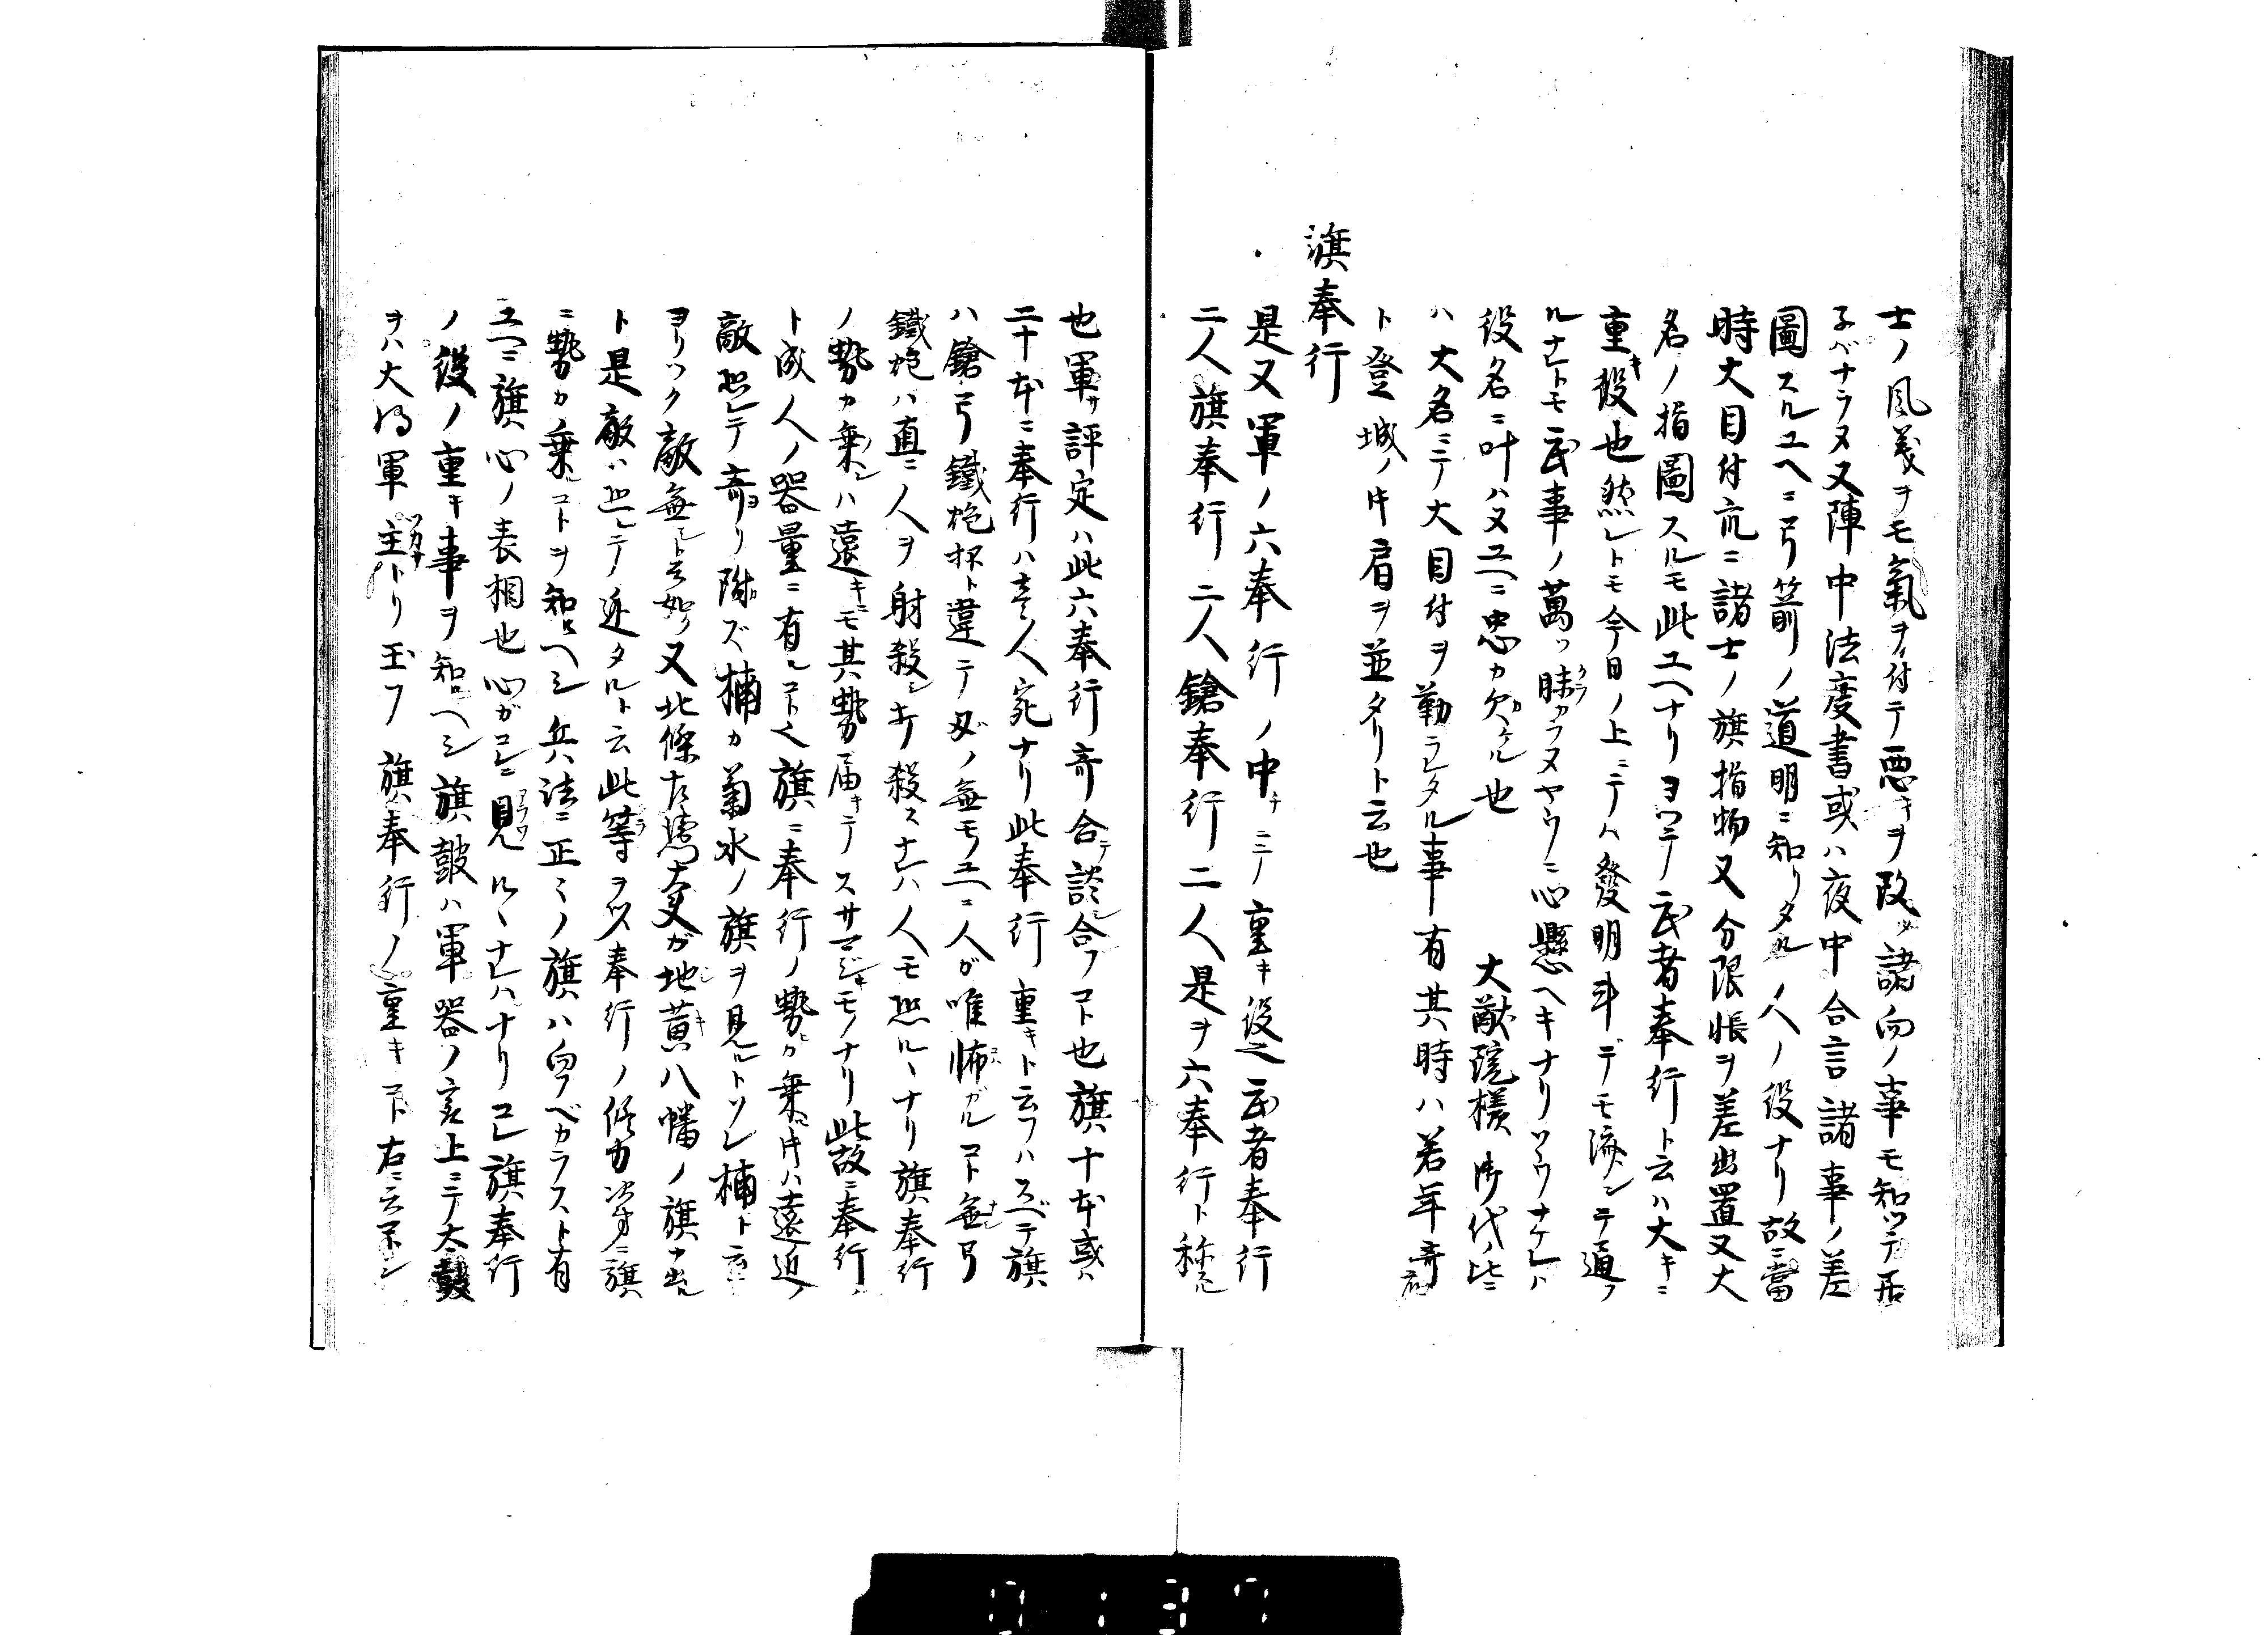 士ノ風義ヲモ氣ヲ付テ悪キヲ改メ諸向ノ事モ知ツテ居
子バナラヌ又陣中法度書或ハ夜中合言諸事ノ差
圖スルユヘニ弓箭ノ道明ニ知リタル人ノ役ナリ故ニ當
時大目付亢ニ諸士ノ旗指物又分限帳ヲ差出置又大
名ノ指圖スルモ此ユヘナリヨツテ武者奉行ト云ハ大キニ
重キ役也然レトモ今日ノ上ニテハ發明斗デモ濟ンテ通ノ
ルナレトモ武事ノ萬ツ昧カラヌヤウニ心懸ヘキナリソウナケレハ
役名ニ叶ハヌユヘニ忠カ欠ケル也 大猷院様御代ノ比ニ
ハ大名ニテ大目付ヲ勤ラレタル事有其時ハ若年寄
ト登城ノ片肩ヲ並タリト云也
旗奉行
是又軍ノ六奉行ノ中チニテ重キ役也武者奉行
二人旗奉行二人鎗奉行二人是ヲ六奉行ト称ル
也軍サ評定ハ此六奉行寄合テ談シ合フコト也旗十本或ハ
二十本ニ奉行ハ壱人宛ナリ此奉行重キト云フハスベテ旗
ハ鎗弓鐵炮抔ト違テ刄ノ無モノユヘニ人ガ唯怖ガルコト無シ弓
鐵炮ハ直ニ人ヲ射殺シ打殺スナレハ人モ恐ル、ナリ旗奉行
ノ勢カ乗レハ遠キニモ其勢届キテスサマジキモノナリ此故ニ奉行
ト成人ノ器量ニ有ルコトニ旗ニ奉行ノ勢ヒカ乗ル片ハ遠近ノ
敵恐レテ寄リ附ズ楠カ菊水ノ旗ヲ見ルトソレ楠ト云
ヨリツク敵無シト云如ク又北條左衛門大夫ガ地黄八幡ノ旗サ出ル
ト是敵ハ恐レテノ近タルト云此等ヲツヘ奉行ノ伎カ次第ニ旗
ニ勢カ乗ルコトヲ知ルヘシ兵法ニ正々ノ旗ハ向フベカラスト有
ユヘニ旗心ノ表相也心ガコレニ見ル、ナレハナリコレ旗奉行
ノ役ノ重キ事ヲ知ルヘシ旗鼓ハ軍器ノ玄上ニテ大鼓
ヲハ大将軍主トリ玉フ旗奉行ノ重キコト右ニ云フ如シ